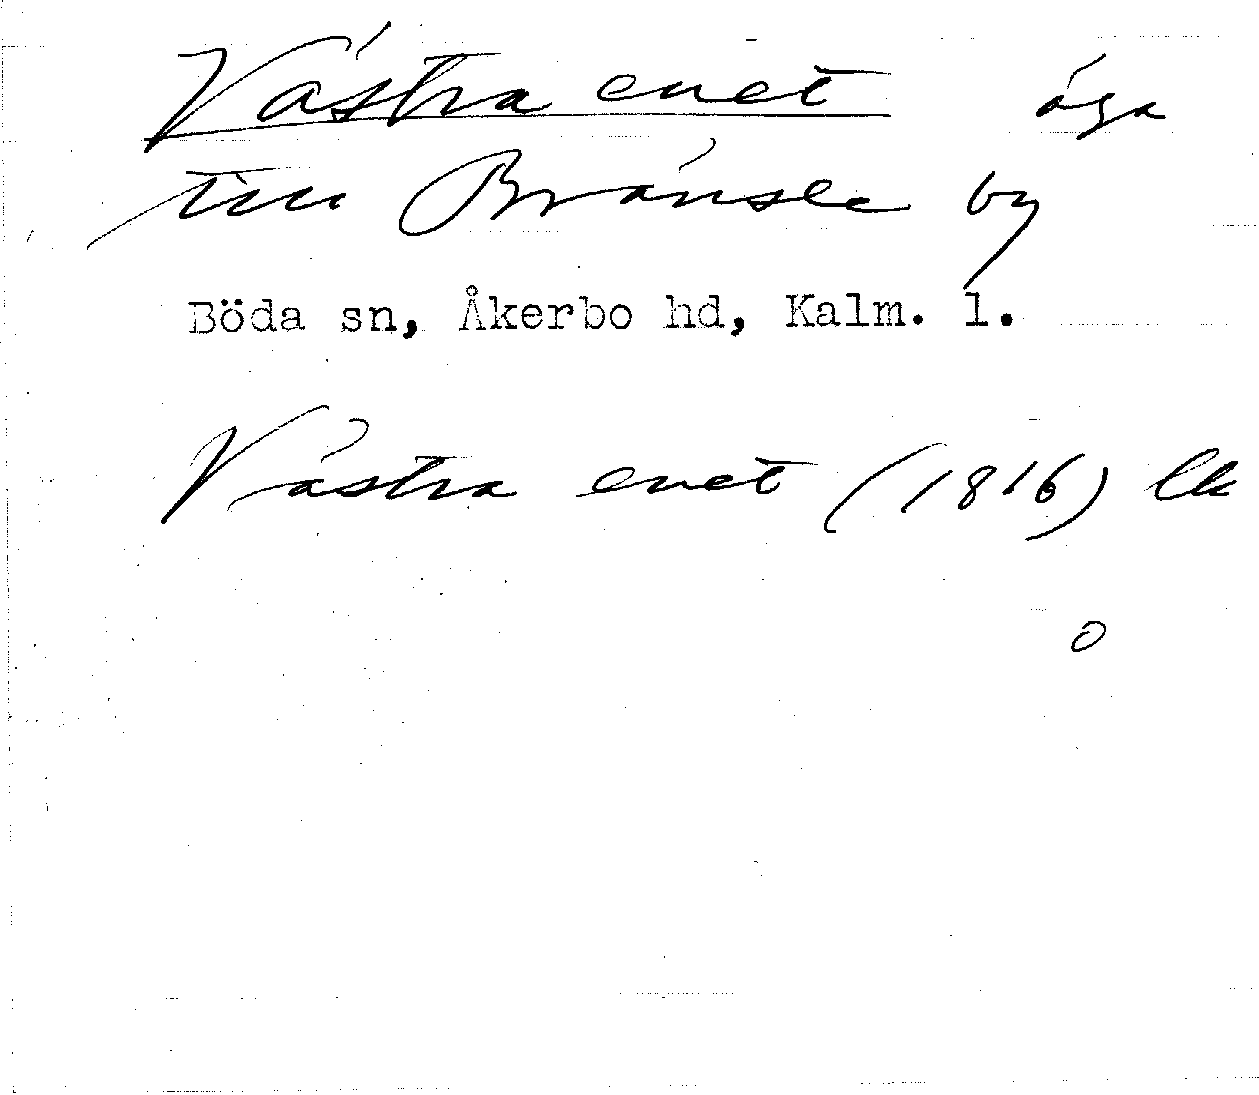 Västra enet äga
till Brännsle by
Böda sn, Åkerbo hd, Kalm. l.
Västra enet (1816) lk
o